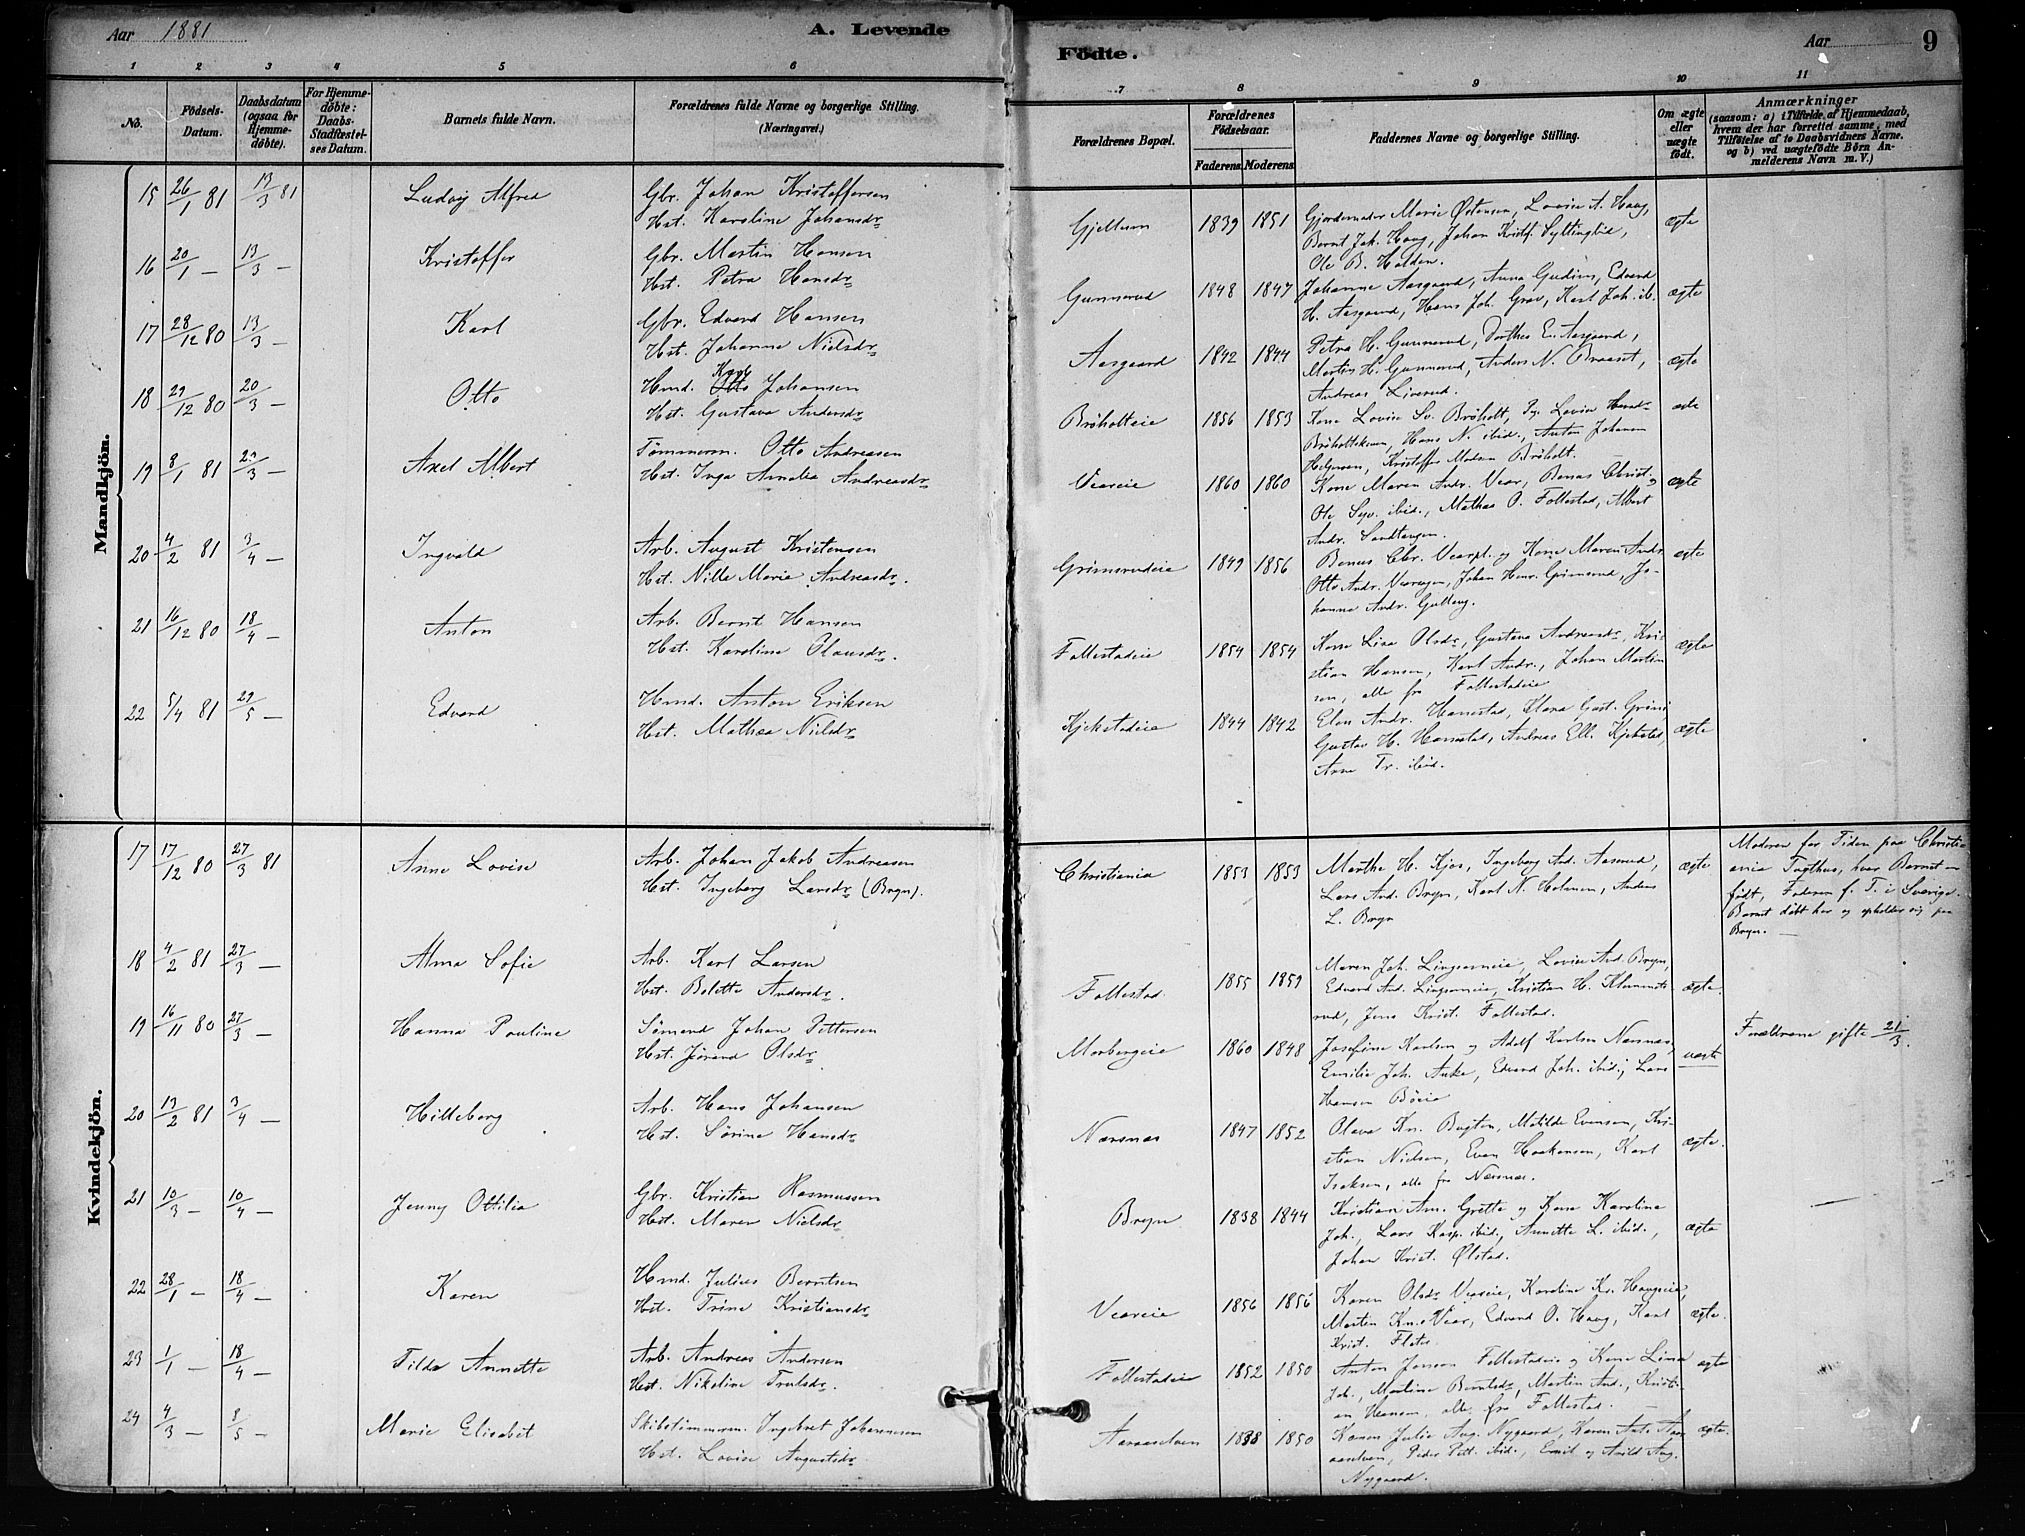 Aar 1881
A. Levende
Födte.
Aar
9
1 2 3 4 5 6 7 8 9 10 11
No.
Födsels-Datum.
Daabsdatum (ogsaa for Hjemme-döbte).
For Hjemme-döbte: Daabs-Stadfæstel-ses Datum.
Barnets fulde Navn.
Forældrenes fulde Navne og borgerlige Stilling. (Næringsvei.)
Forældrenes Bopæl.
Forældrenes Födselsaar.
Faderens. Moderens.
Faddernes Navne og borgerlige Stilling.
Om ægte eller uægte födt.
Anmærkninger
(saasom: a) i Tilfælde af Hjemmedaab,
hvem der har forrettet samme, med
Tilföielse af to Daabsvidners Navne.
og b) ved uægtefödte Börn An-
melderens Navn m. V.)
Mandkjön.
15 26/1 81 13/3 81 Ludvig Alfred
Gbr. Johan Kristoffersen
Hst. Karoline Johansdr
Gjellum 1839 1851
Gjordemoder Marie Østensen, Lovise A. Haug,
Bernt Joh. Haug, Johan Kristf. Syltingbie,
Ole B. Holden.
ægte
16 20/1 – 13/3 – Kristoffer
Gbr. Martin Hansen
Hst. Petra Hansdr
Gunnerud 1848 1847
Johanne Aasgaard, Anna Gudim, Edvard
H. Aasgaard, Hans Joh. Grav, Karl Joh. ib.
ægte
17 28/12 80 13/3 – Karl
Gbr. Edvard Hansen
Hst. Johanne Nielsdr
Aasgaard 1842 1844
Petra H. Gunnerud, Dorthea E. Aasgaard,
Martin H. Gunnerud, Anders N. Braaset,
Andreas Liverud.
ægte
18 29/12 80 20/3 – Otto
Hmd. Otto Johansen
Hst. Gustava Andersdr
Bröholteie 1856 1853
Kone Lovise Sv. Bröholt, Pg. Lovise Hansdr
Bröholteie, Hans N. ibid., Anton Johansen
Helgesen, Kristoffer Madsen Bröholt.
ægte
19 8/1 81 20/3 – Axel Albert
Tömmerm. Otto Andreasen
Hst. Inga Amalia Andreasdr
Veareie 1860 1860
Kone Maren Andr. Vear, Benas Christ. og
Ole Syv. ibid., Mathea O. Follestad, Albert
Andr. Sandtangen.
ægte
20 4/2 81 3/4 – Ingvald
Arb. August Kristensen
Hst. Nille Marie Andreasdr.
Grimsrudeie 1849 1856
Benas Chr. Vearpl. og Kone Maren Andr.
Otto Andr. Vearegen, Johan Henr. Grimsrud, Jo-
hanne Andr. Gulleng.
ægte
21 16/12 80 18/4 – Anton
Arb. Bernt Hansen
Hst. Karoline Olausdr.
Follestadeie 1854 1854
Kone Lisa Olsdr, Gustava Andreasdr, Kri-
stian Hansen, Karl Andr., Johan Martin
sen, alle fra Follestadeie
ægte
22 5/4 81 29/5 – Edvard
Hmd. Anton Eriksen
Hst. Mathea Nielsdr
Kjekstadeie 1844 1842
Elen Andr. Hanestad, Klara Gust. Grini,
Gustav H. Hanestad, Andreas Ell. Kjekstad,
Arne Tr. ibid.
ægte
Kvindekjön.
17 17/12 80 27/3 81 Anne Lovise
Arb. Johan Jakob Andreasen
Hst. Ingeborg Larsdr (Bryn).
Christiania 1853 1853
Marthe H. Kjos, Ingeborg And. Aaserud,
Lars And. Bryn, Karl N. Holmen, Anders
L. Bryn
ægte
Moderen for Tiden paa Christi-
ania Tugthus, hvor Barnet er
födt, Faderen f. T. i Sverige.
Barnet döbt her og opholder sig paa
Bryn. –
18 4/2 81 27/3 – Alma Sofie
Arb. Karl Larsen
Hst. Bolette Andersdr.
Follestad. 1855 1859
Maren Joh. Lingsomeie, Lovise And. Bryn,
Edvard And. Lingsomeie, Kristian H. Klemmets
rud, Jens Krist. Follestad.
ægte.
19 16/11 80 27/3 – Hanna Pouline
Sömand Johan Pettersen
Hst. Jörand Olsdr
Morbergeie 1860 1848
Josefine Karlsen og Adolf Karlsen Nærsnæs,
Emilie Joh. Auke, Edvard Joh. ibid., Lars
Hansen Böeie
uægte
Forældrene gifte 21/3.
20 13/2 81 3/4 – Hilleborg
Arb. Hans Johansen
Hst. Sörine Hansdr
Nærsnæs 1847 1852
Olava Kr. Bugten, Matilde Evensen, Kri-
stian Nielsen, Even Haakensen, Karl
Isaksen, alle fra Nærsnæs.
ægte.
21 10/3 – 10/4 – Jenny Ottilia
Gbr. Kristian Rasmussen
Hst. Maren Nielsdr
Bryn 1838 1844
Kristian Am. Grette og Kone Karoline
Joh., Lars Kasp. ibid., Annette L. ibid.,
Johan Krist. Ølstad.
ægte
22 28/1 – 18/4 – Karen
Hmd. Julius Berntsen
Hst. Trine Kristiansdr
Veareie 1856 1856
Karen Olsdr Veareie, Karoline Kr. Haugseie,
Martin Kn. Vear, Edvard O. Haug, Karl
Krist. Flata.
ægte.
23 1/1 – 18/4 – Tilda Annette
Arb. Andreas Andersen
Hst. Nikoline Trulsdr.
Follestadeie 1852 1850
Anton Jensen Follestadeie og Kone Lina
Joh., Martine Berntsdr, Martin And., Kristi-
an Hansen, alle fra Follestad.
ægte
24 4/3 – 8/5 – Marie Elisabet
Skibstömmerm. Ingebret Johannesen
Hst. Lovise Augustsdr
Aaraaselven 1838 1850
Karen Julie Aug. Nygaard, Karen Ants. Aar
aaselven, Peder Pett. ibid., Emil og Arild Aug.
Nygaard.
ægte.